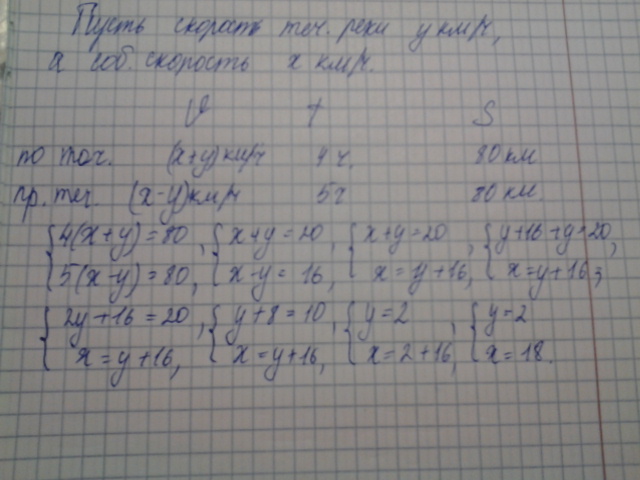 Пусть скорость теч. реки y км/ч,
а соб. скорость x км/ч.
V t S
по теч. (x+y)км/ч 4 ч. 80 км
пр. теч. (x-y)км/ч 5ч 80 км.
{4(x+y)=80, {x+y=20, {x+y=20, {y+16+y=20,
5(x-y)=80, x-y=16, x=y+16, x=y+16,
{2y+16=20, {y+8=10, {y=2, {y=2
x=y+16, x=y+16, x=2+16, x=18.